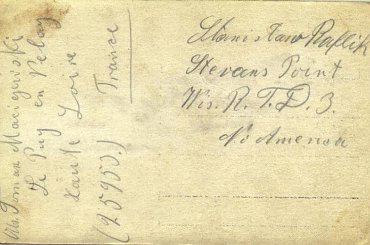 Stanisław Raflik
Stevans Point
Wis. R. T. D. 3.
No America
Tomax Maciejewski
Le Puy en Velay
Haute Loire
(25953) France